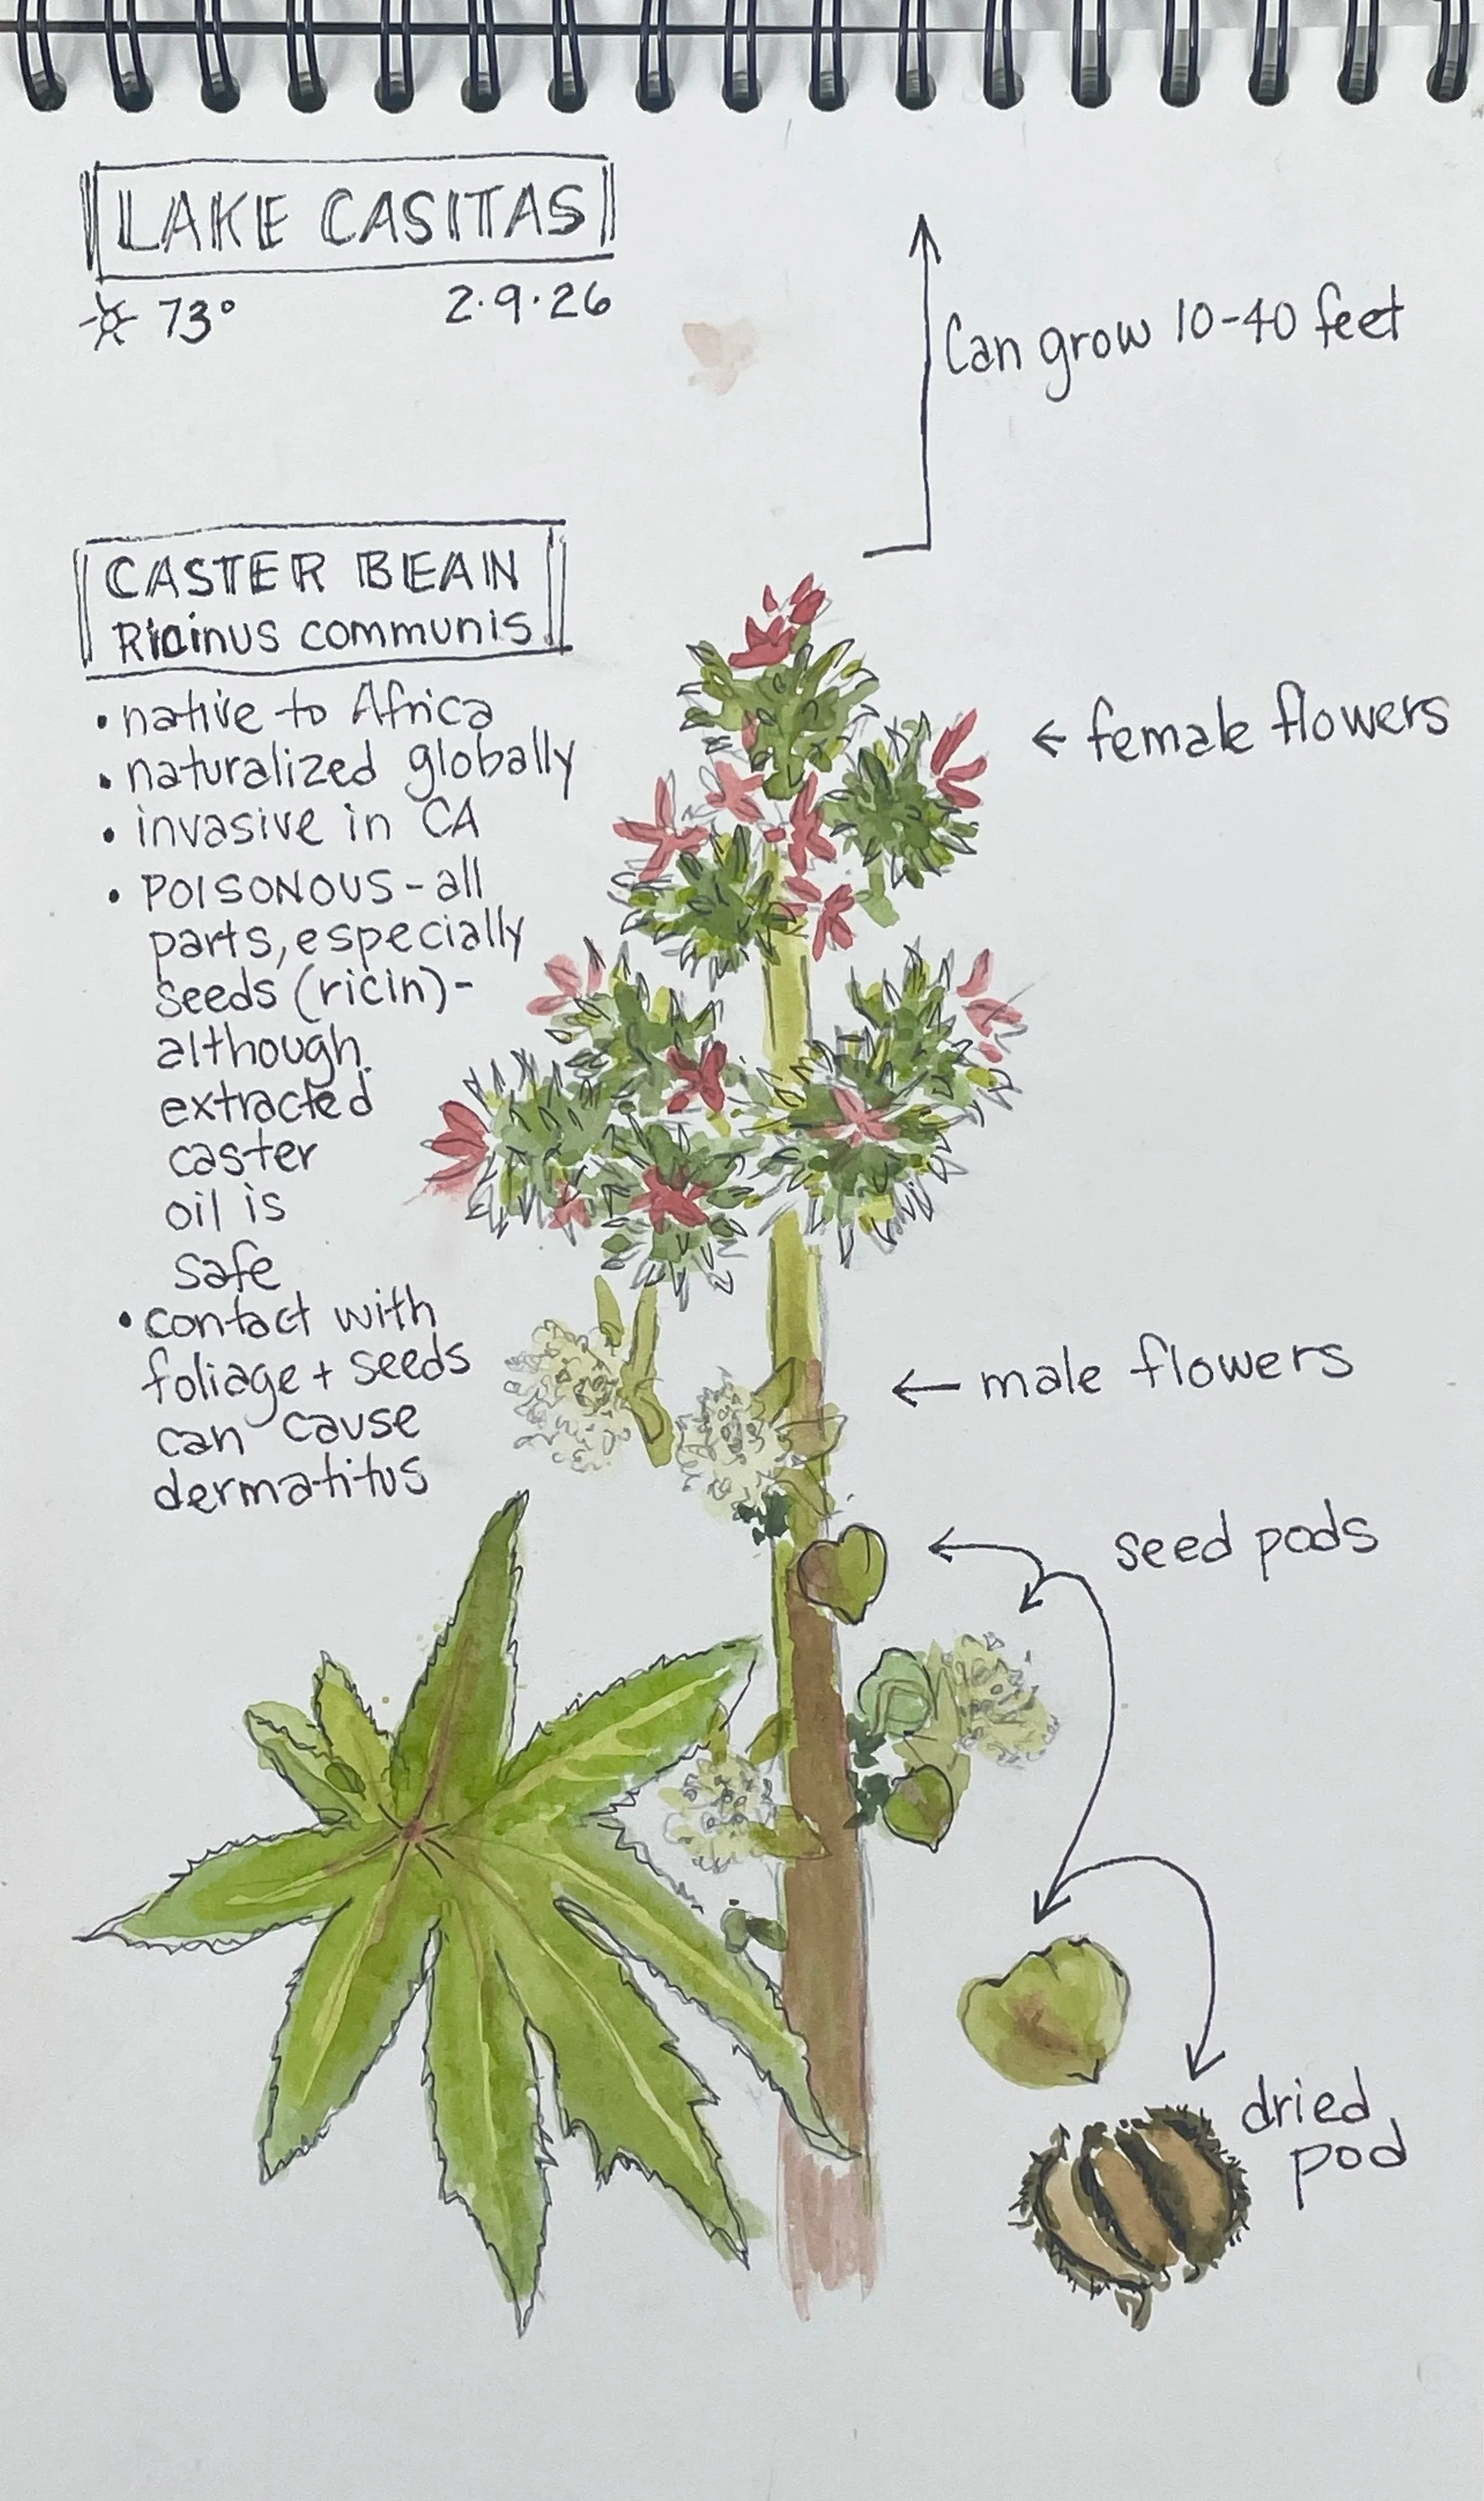 LAKE CASITAS
73° 2.9.26
Can grow 10-40 feet
CASTER BEAN
Ricinus communis
• native to Africa
• naturalized globally
• invasive in CA
• POISONOUS - all
parts, especially
seeds (ricin)-
although
extracted
caster
oil is
safe
• contact with
foliage + seeds
can cause
dermatitus
← female flowers
← male flowers
seed pods
dried
pod